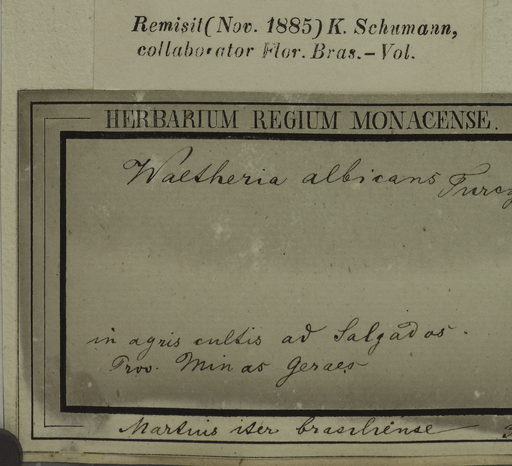 Remisit (Nov. 1885) K. Schumann,
collaborator Flor. Bras. – Vol.
HERBARIUM REGIUM MONACENSE.
Waltheria albicans Turcz
in agris cultis ad Salgados.
Prov. Minas Geraes
Martius iter brasiliense